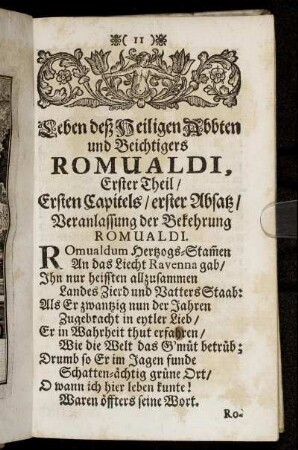 ( 11 )
Leben deß Heiligen Abbten
und Beichtigers
ROMUALDI,
Erster Theil /
Ersten Capitels / erster Absatz /
Veranlassung der Bekehrung
ROMUALDI.
ROmualdum Hertzogs-Stam̃en
An das Liecht Ravenna gab /
Ihn nur heissten allzusammen
Landes Zierd und Vatters Staab:
Als Er zwantzig nun der Jahren
Zugebracht in eytler Lieb /
Er in Wahrheit thut erfahren /
Wie die Welt das G'müt betrüb;
Drumb so Er im Jagen funde
Schatten-ächtig grüne Ort /
O wann ich hier leben kunte!
Waren öffters seine Wort.
Ro-